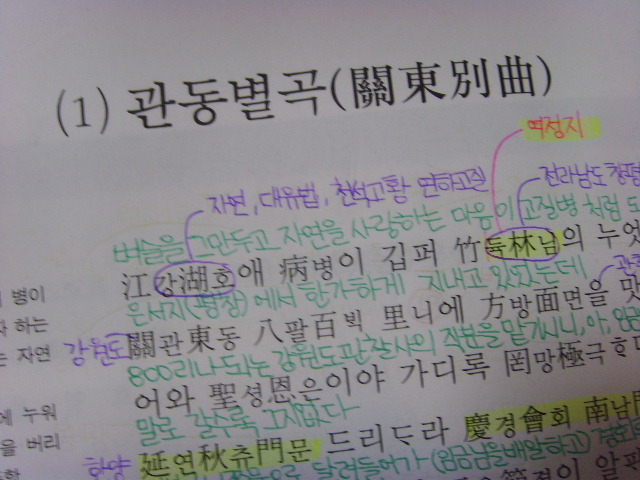 (1) 관동별곡(關東別曲)
여정지
자연, 대유법, 천석고황 연하고질
전라남도 창평
벼슬을 그만두고 자연을 사랑하는 마음이 고질병 처럼 되
江강湖호애 病병이 깁퍼 竹듁林님의 누엇
은서지(창평)에서 한가하게 지내고 있었는데
병이
하는
자연
강원도
關관東동 八팔百빅 里니에 方방面면을 맛
800리나 되는 강원도 관찰사의 직분을 맡기시니, 아, 임금
어와 聖셩恩은이야 가디록 罔망極극ᄒ다
말로 갈수록 그지없다
에 누워
을 버리
한양
延연秋츄門문 드리ᄃ라 慶경會회 南남門
달려들어가 (임금님을 배알하고) 경회